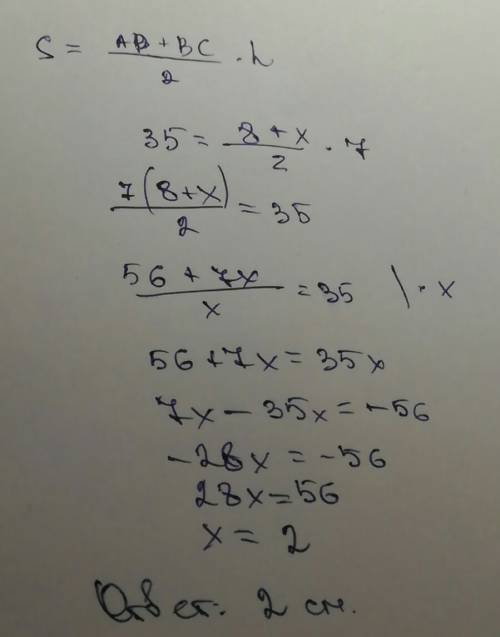 S = (AD + BC)/2 · h
35 = (8 + x)/2 · 7
7(8+x)/2 = 35
(56 + 7x)/x = 35 | · x
56 + 7x = 35x
7x - 35x = -56
-28x = -56
28x = 56
x = 2
Ответ: 2 см.